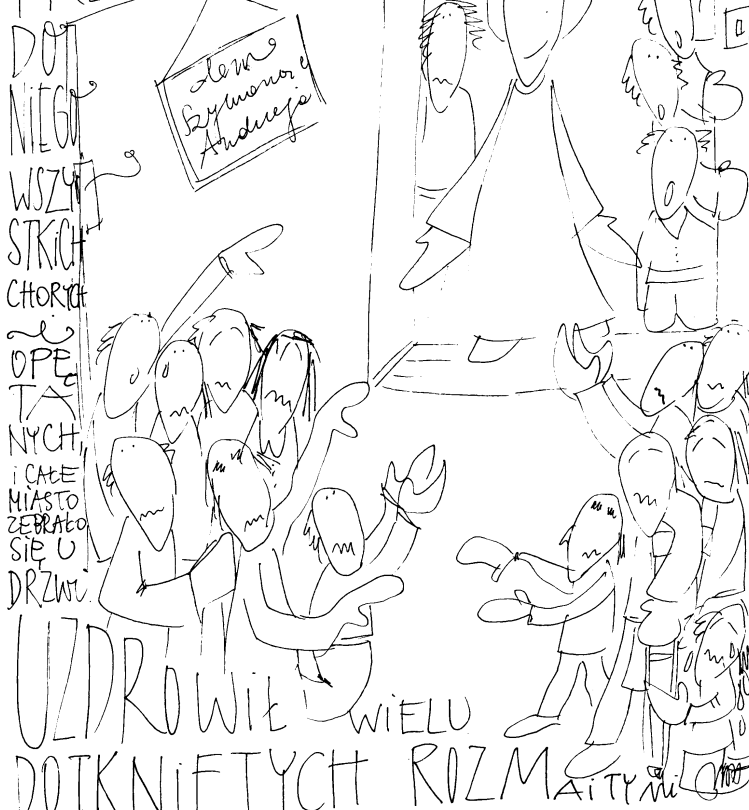 DO
NIEGO
WSZY
STKICH
CHORYCH
i
OPĘ
TA
NYCH,
i CAŁE
MIASTO
ZEBRAŁO
SIĘ U
DRZWI.
dom
Szymona i
Andrzeja
UZDROWIŁ WIELU
DOTKNIĘTYCH ROZMAITYMI